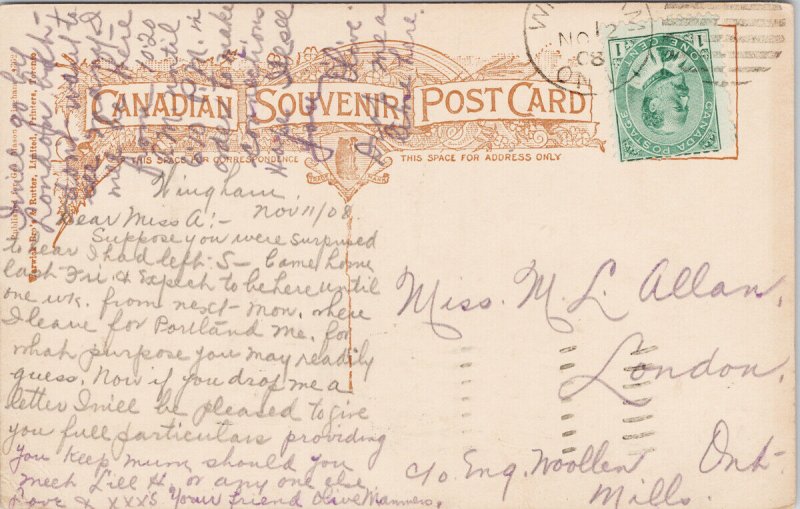 CANADIAN SOUVENIR POST CARD
THIS SPACE FOR CORRESPONDENCE
THIS SPACE FOR ADDRESS ONLY
Warwick Bro's & Rutter, Limited, Printers, Toronto.
NO 12
08
ONE CENT
CANADA POSTAGE
Wingham,
Nov 11/08
Dear Miss A:-
Suppose you were surprised
to hear I had left S- Came home
last Fri. & Expect to be here until
one wk. from next Mon. where
I leave for Portland Me. for
what purpose you may readily
guess. Now if you drop me a
letter I will be pleased to give
you full particulars providing
you keep mum, should you
meet Lill H. or any one else
Love & XXXS Your friend Olive Manners.
I will go by
London
wait
here
from 10 20
until
P.M. in
order to make
connections
Hope to see
you
Olive.
Miss. M. L. Allan,
London,
Ont-
c/o Eng. Woollen
Mills.